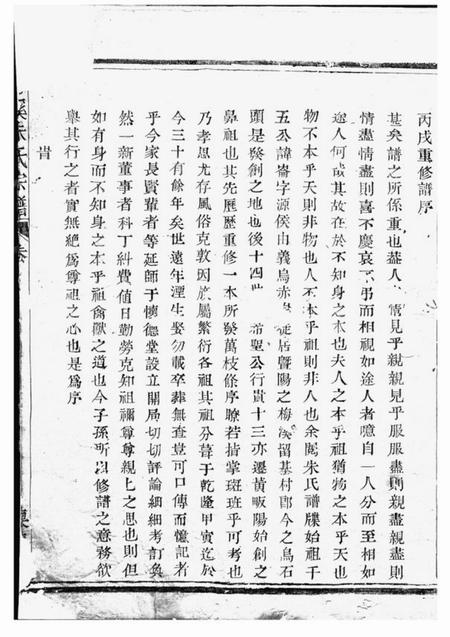 丙戌重修譜序
甚矣譜之所係重也蓋人 情見乎親親見乎服服盡則親盡親盡則
情盡情盡則喜不慶哀不弔而相視如途人者噫自一人分而至相如
途人何哉其故在於不知身之本也夫人之本乎祖猶物之本乎天也
物不本乎天則非物也人不本乎祖則非人也余閱朱氏譜牒始祖千
五公諱崙字源侯由義烏赤 徙居暨陽之梅溪留基村郎今之烏石
頭是發創之地也後十四世 希聖公行貴十三亦遷黃畈陽始創之
鼻祖也其先歷歷重修一本所發萬枝條序瞭若指掌斑斑乎可考也
乃孝思尤存風俗克敦因族屬繁衍各祖其祖分葺于乾隆甲寅迄於
今三十有餘年矣世遠年湮生娶勿載卒葬無查豈可口傳而憶記者
乎今家長賢輩者等延師于懷德堂設立開局切切評論細細考訂奐
然一新董事者科丁糾費値日勤勞克知祖禰尊尊親上之思也則但
如有身而不知身之本乎祖禽獸之道也今子孫所以修譜之意務欲
舉其行之者實無絶爲尊祖之心也是爲序
 昔
溪朱氏宗譜 卷